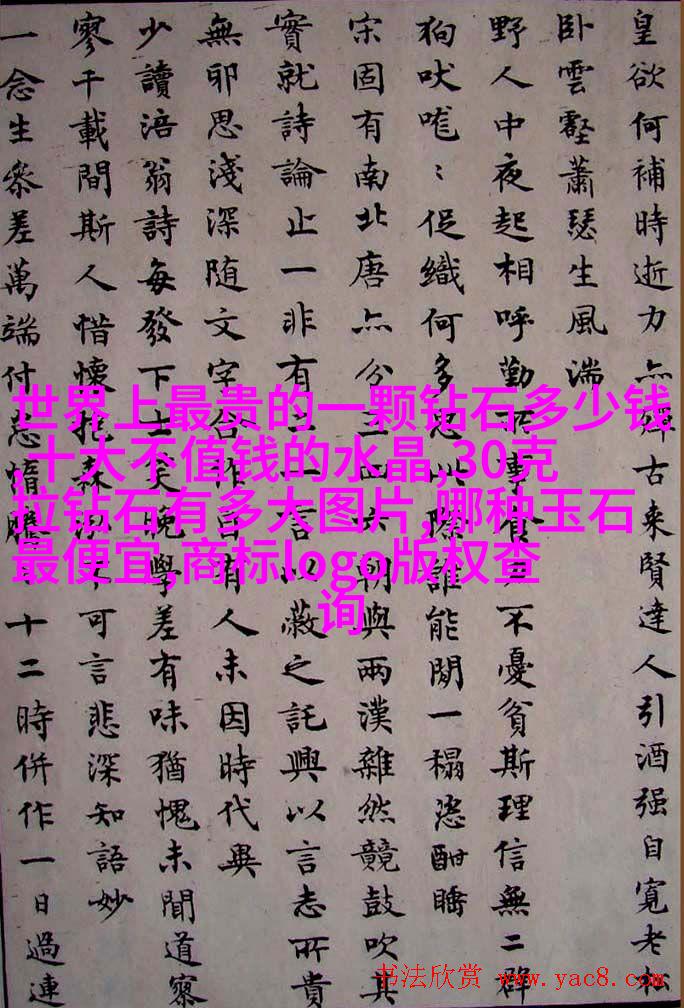 皇欲何補時逝力亦殫古来賢達人引酒强自寬老
卧雲壑蕭瑟生風湍
野人中夜起相呼勤事食不憂貧斯理信無二群
狗吠嘊〻促織何多思以誰能閒一榻恣酣睡
宋固有南北唐亦分三四朝與兩漢雜然競鼓吹其
實就詩論止一非有二一言以蔽之託興以言志所貴
無邪思淺深随文字合作有人未因時代異
少讀涪翁詩每發下士笑晚學差有味猶愧未聞道寥
寥千載間斯人惜懷抱森不可言悲深知語妙
一念生參差萬端付忘惰十二時併作一日過連
世界上最贵的一颗钻石多少钱
,十大不值钱的水晶,30克
拉钻石有多大图片,哪种玉石
最便宜,商标logo版权查
询
书法欣赏 www.yac8.com